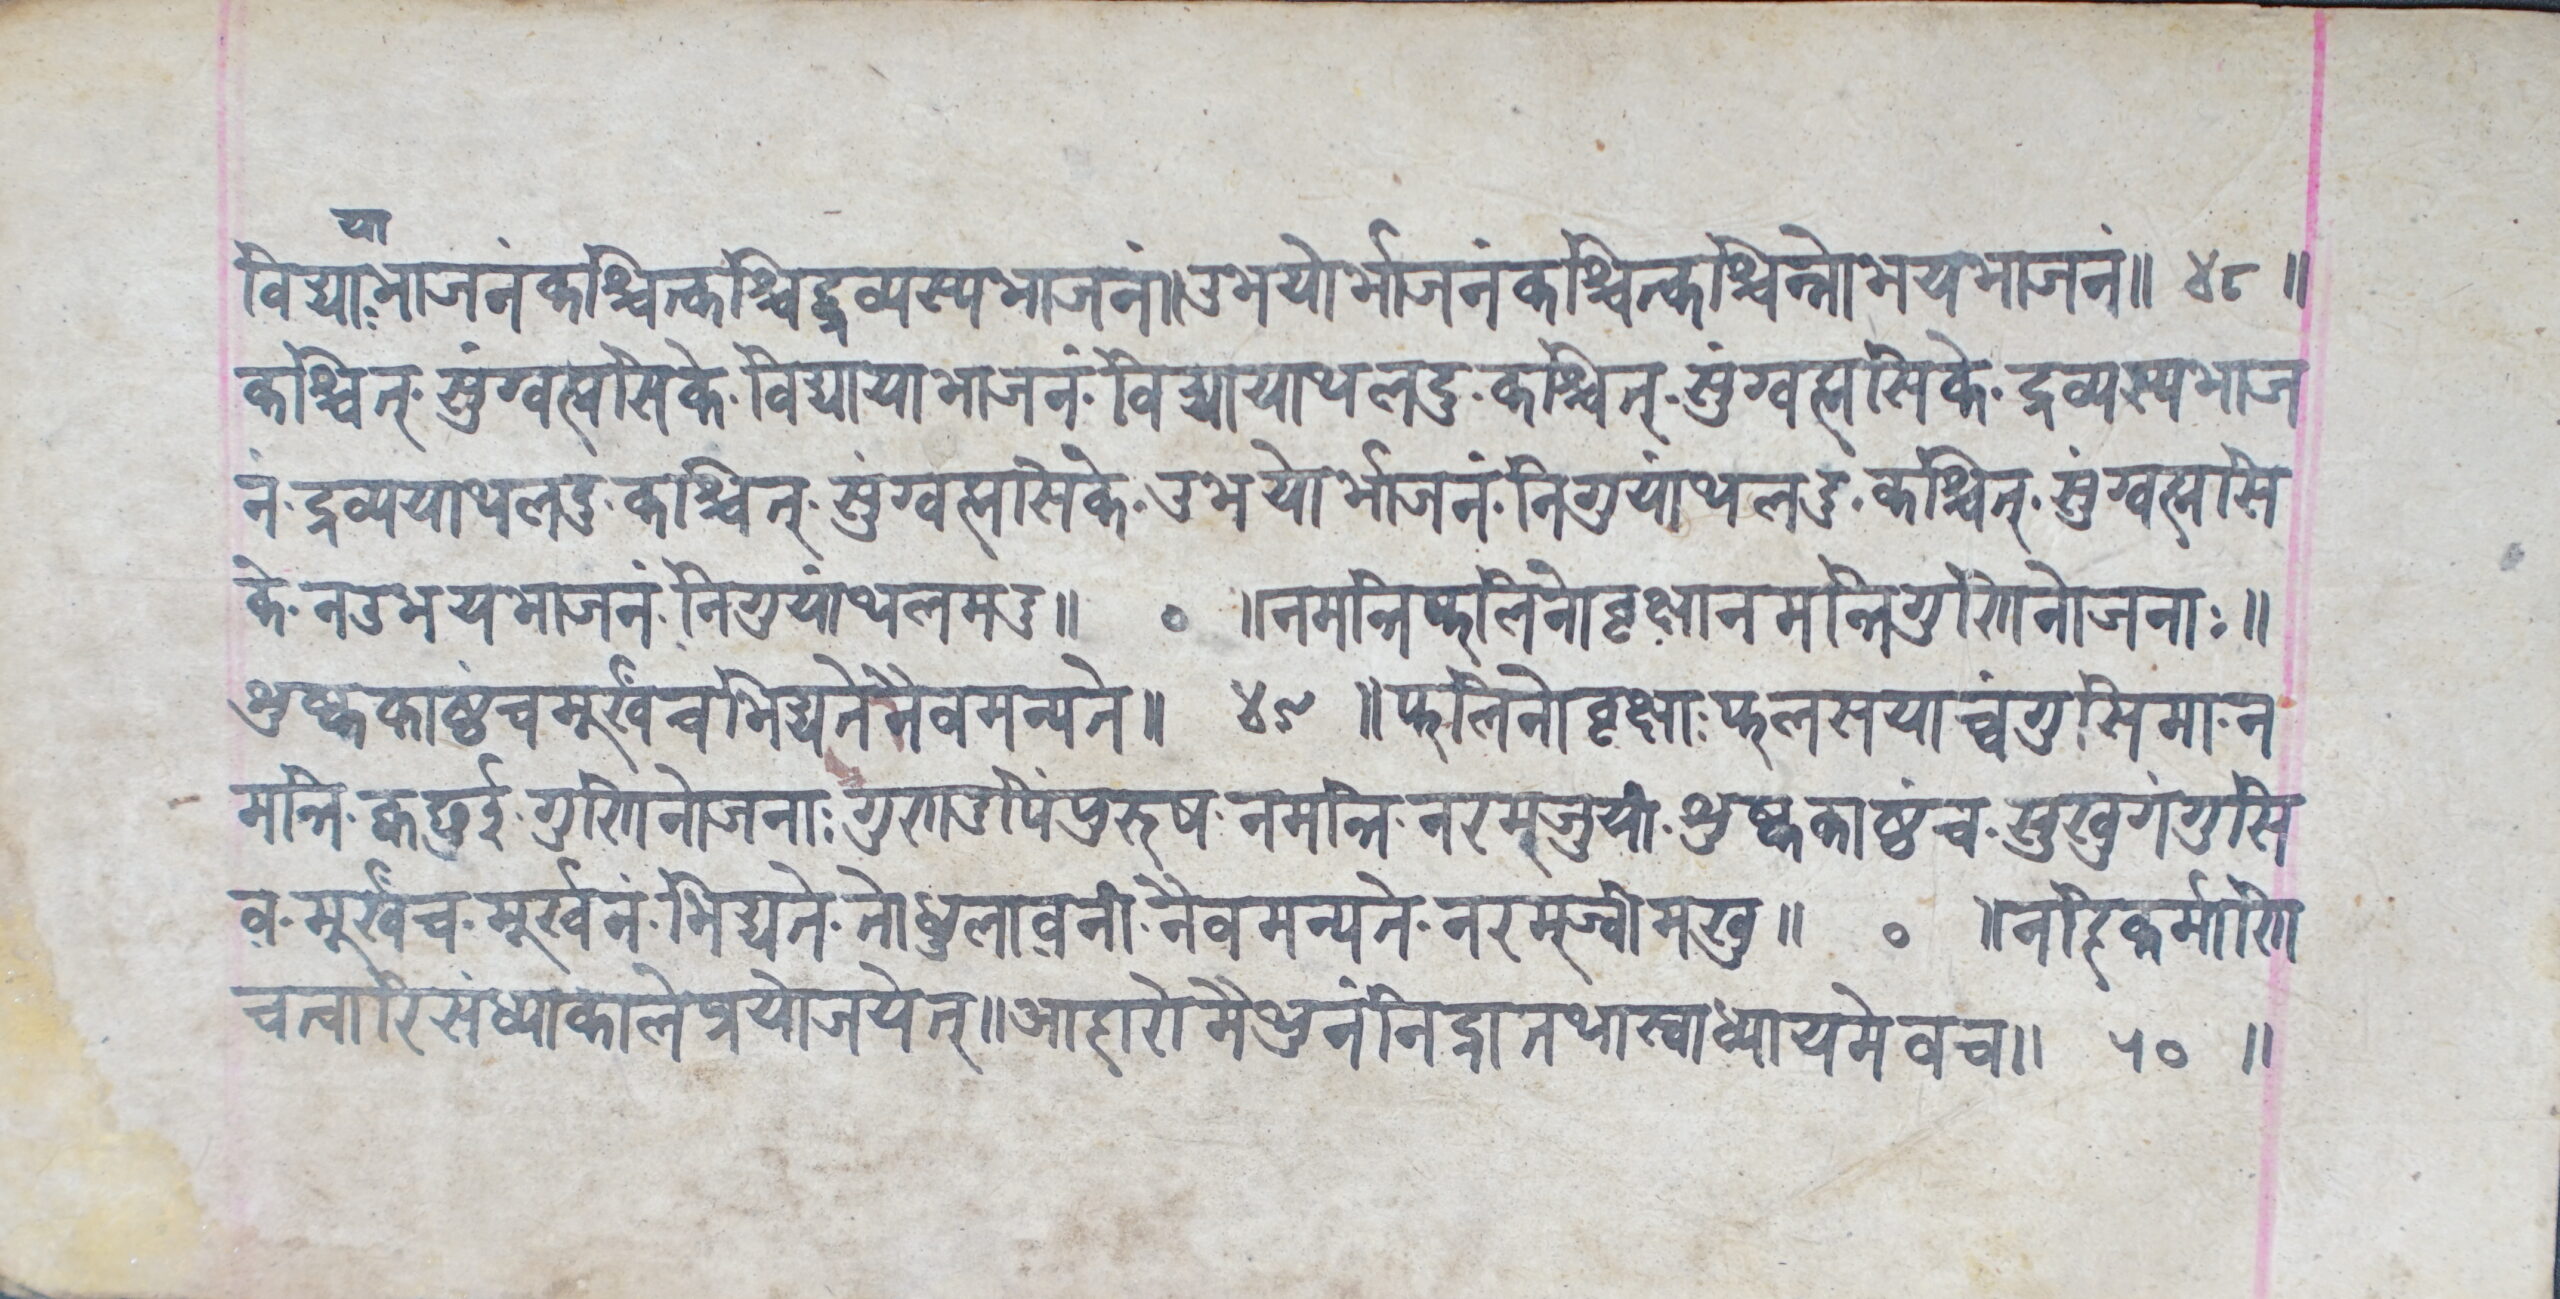 या
विद्याःभाजनंकश्चित्कश्चिद्द्रव्यस्यभाजनं॥उभयोर्भाजनंकश्चित्कश्चिन्नोभयभाजनं॥ ४८ ॥
कश्चित्·सुंग्वह्मसिके·विद्यायाभाजनं·विद्यायाथलदु·कश्चित्·सुंग्वह्मसिके·द्रव्यस्यभाज
नं·द्रव्ययाथलदु·कश्चित्·सुंग्वह्मसिके·उभयोर्भाजनं·निगुयांथलदु·कश्चित्·सुंग्वह्मसि
के·नउभयभाजनं·निगुयांथलमदु॥ ० ॥नमन्तिफलिनोवृक्षानमन्तिगुणिनोजनाः॥
शुष्ककाष्ठंचमूर्खंचभिद्यतेनैवमन्यते॥ ४९ ॥फलिनोवृक्षाःफलसयाच्वंगुसिमा·न
मन्ति·कछुई·गुणिनोजनाः·गुणदुपिंपुरुष·नमन्ति·नरमजुयी·शुष्ककाष्ठंच·सुखुगंगुसि
व·मूर्खंच·मूर्खनं·भिद्यते·तोधुलावनी·नैवमन्यते·नरमज्वीमखु॥ ० ॥नहिकर्माणि
चत्वारिसंध्याकालेप्रयोजयेत्॥आहारोमैथुनंनिद्रातथास्वाध्यायमेवच॥ ५० ॥